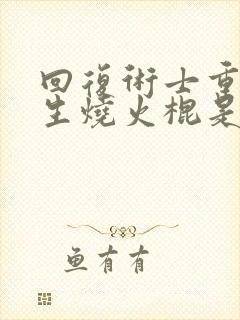 回復術士重
生燒火棍是
鱼有有